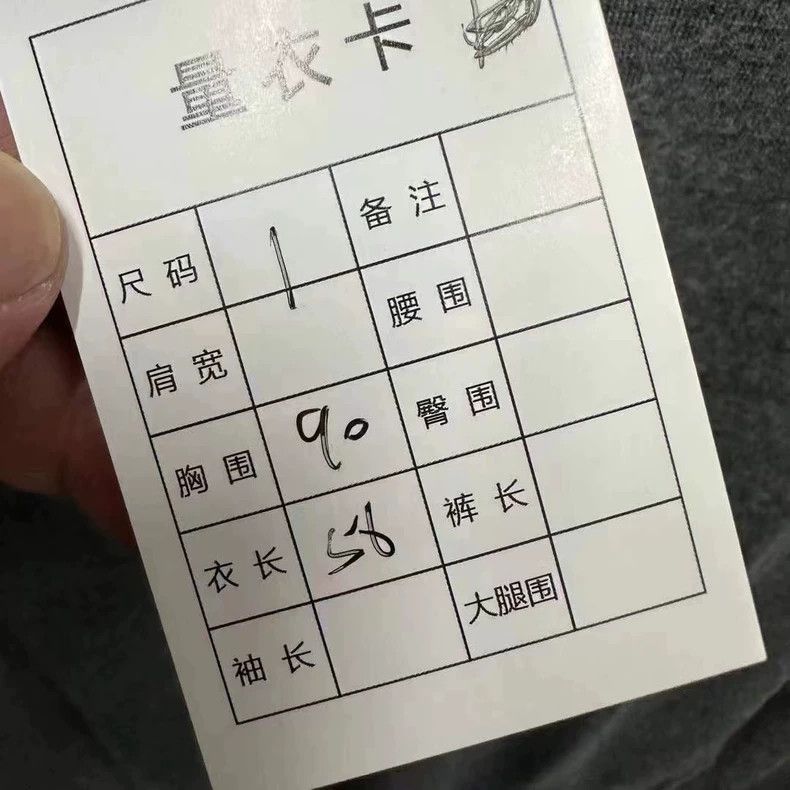 量衣卡
尺码 1 备注
肩宽 腰围
胸围 90 臀围
衣长 56 裤长
袖长 大腿围